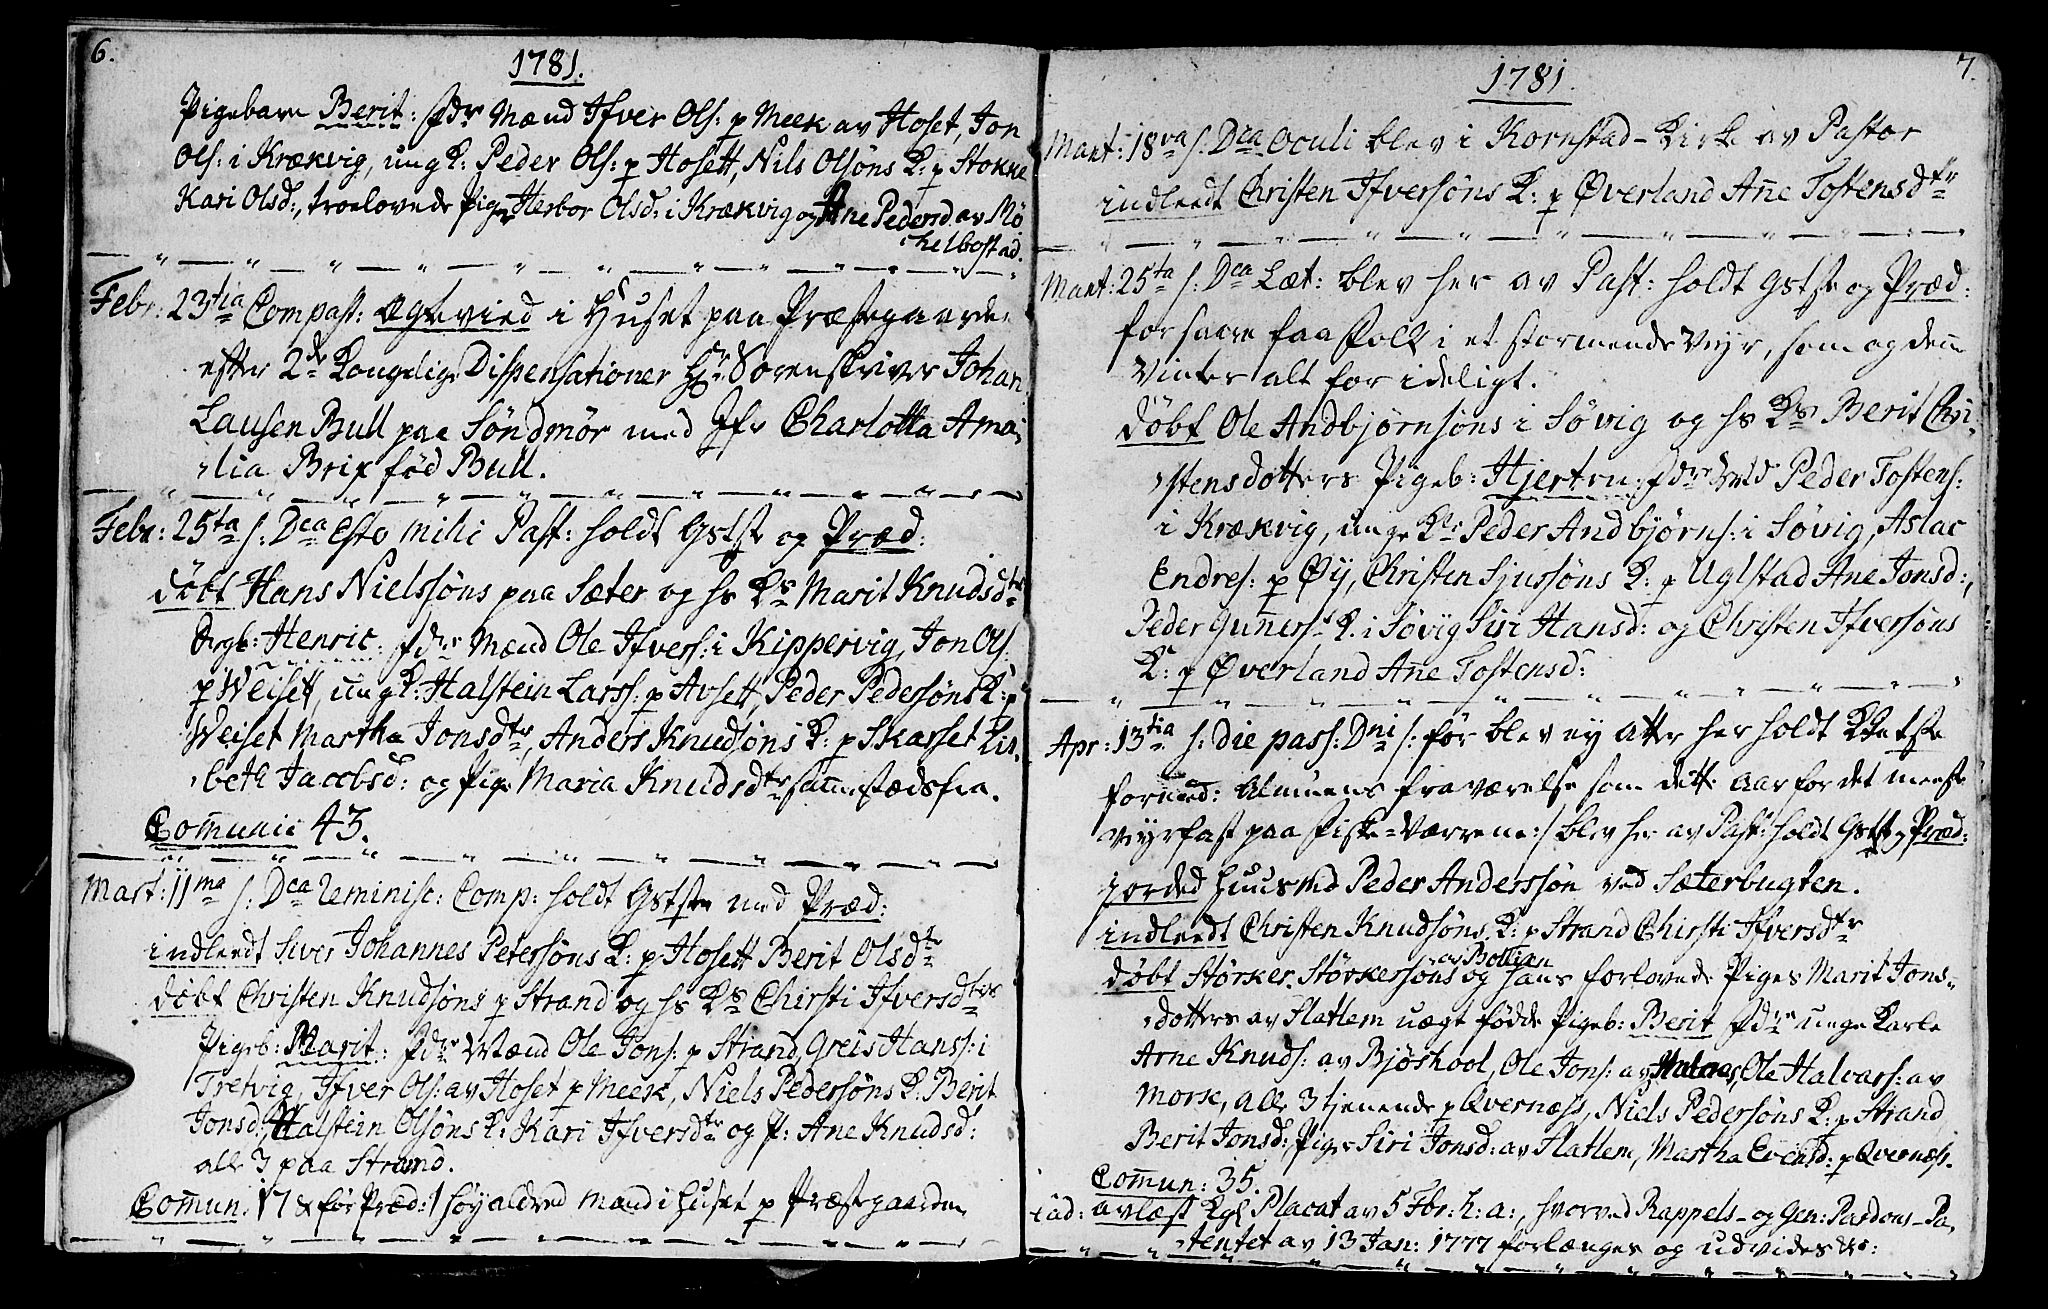 6.
1781.
Pigebarn Berit: Fdr Mænd Ifver Ols: p Meek av Hoset, Jon
Ols: i Krækvig, ung K: Peder Ols: p Hosett, Nils Olsöns K: p Stokke
Kari Olsd:, troelovede Pige Herbor Olsd: i Krækvig og Ane Pedersd av Mö
chelbostad.
Febr: 23tia Compast: Ægtevied i Huset paa Præstegaarden
efter 2de Kongelige Dispensationer Hr Sorenskriver Johan
Lausen Bull paa Söndmör med Jfr Charlotta Ama,
,lia Brix föd Bull.
Febr: 25ta s: Dca Esto mihi Past: holdt Gstste og Præd:
döbt Hans Nielssöns paa Sæter og hs Ks Marit Knudsdtrs
Drgb: Henric: Fdre Mænd Ole Ifvers: i Kippervig, Jon Ols
p Weiset, ung K: Halstein Larss: p Avsett, Peder Pedersöns K: p
Weiset Martha Jonsdtr, Anders Knudsöns K: p Skarset Lis,
,beth Jacobsd: og Pige Maria Knudsdtr sammestædsfra.
Com̄unic 43.
Mart: 11ma s: Dca Reminisc: Comp: holdt Gstste med Præd:
indleedt Siver Johannes Petersöns K: p Hosett Berit Olsdtr
döbt Christen Knudsöns p Strand og hs Ks Chirsti Ifversdtrs
Pigeb: Marit: Fdre Mænd Ole Jons: p Strand, Greis Hanss: i
Tretvig, Ifver Ols: av Hoset p Meek, Niels Pedersöns K: Berit
Jonsd:, Halstein Olsöns K: Kari Ifversdtr og P: Ane Knudsd:
alle 3 paa Strand.
Com̄un. 17 & för Præd:/ höyaldred mand i Huset p Præstegaarden
7.
1781.
Mart: 18va s: Dca Oculi blev i Kornstad-Kirke av Pastor
indleedt Christen Ifversöns K: p Øverland An̄e Tostensdtr
Mart: 25ta s: Dca Læt: blev her av Past: holdt Gstste og Præd:
for saare faa Folk i et stormende Veyr, som og den̄
Vinter alt for ideligt.
döbt Ole Andbjörnsöns i Sövig og hs Ks Berit Chri,
,stensdotters Pigeb: Hjertru: Fdre Peder Tostens:
i Krækvig, unge Kre Peder Andbjörns: i Sövig, Aslac
Endres: p Øy, Christen Sjurssöns K: p Uglstad Ane Jonsd:,
Peder Gun̄ers: K. i Sövig Siri Hansd: og Christen Ifversöns
K: p Øverland An̄e Tostensd:
Apr: 13tia s: Die pass: Dni/: för blev ey atter her holdt
formed: Almuens fraværelse som dette Aar for det meeste
veyrfast paa Fiske-Værrene:/ blev her av Past: holdt Gstste og Præd:
jorded Huusmd Peder Anderssön ved Sæterbugten.
indleedt Christen Knudsöns K: p Strand Chirsti Ifversdtr
av Bollien
döbt Störker Störkersöns og hans forlovede Piges Marit Jons,
,dotters av Flatlem uægt födde Pigeb: Berit Fdre unge Karle
Arne Knuds: av Bjöshool, Ole Jons: av Halnæs, Ole Halvars: av
Morse, alle 3 tjenende p Qvernæss, Niels Pedersöns K: p Strand
Berit Jonsd: Pige Siri Jonsd: av Flatlem, Martha Evensd: p Qvernæss.
Com̄un: 35.
avlæst Kgl Placat av 5 Fbr: h: a:, hvorved Rappels- og Gen: Pardons-Pa,
,tentet av 13 Jan: 1777 forlænges og udvides &c: